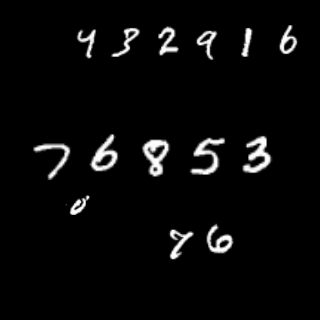 432916
76853
0
76